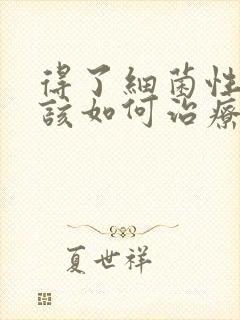 得了細菌性
該如何治療
夏世祥